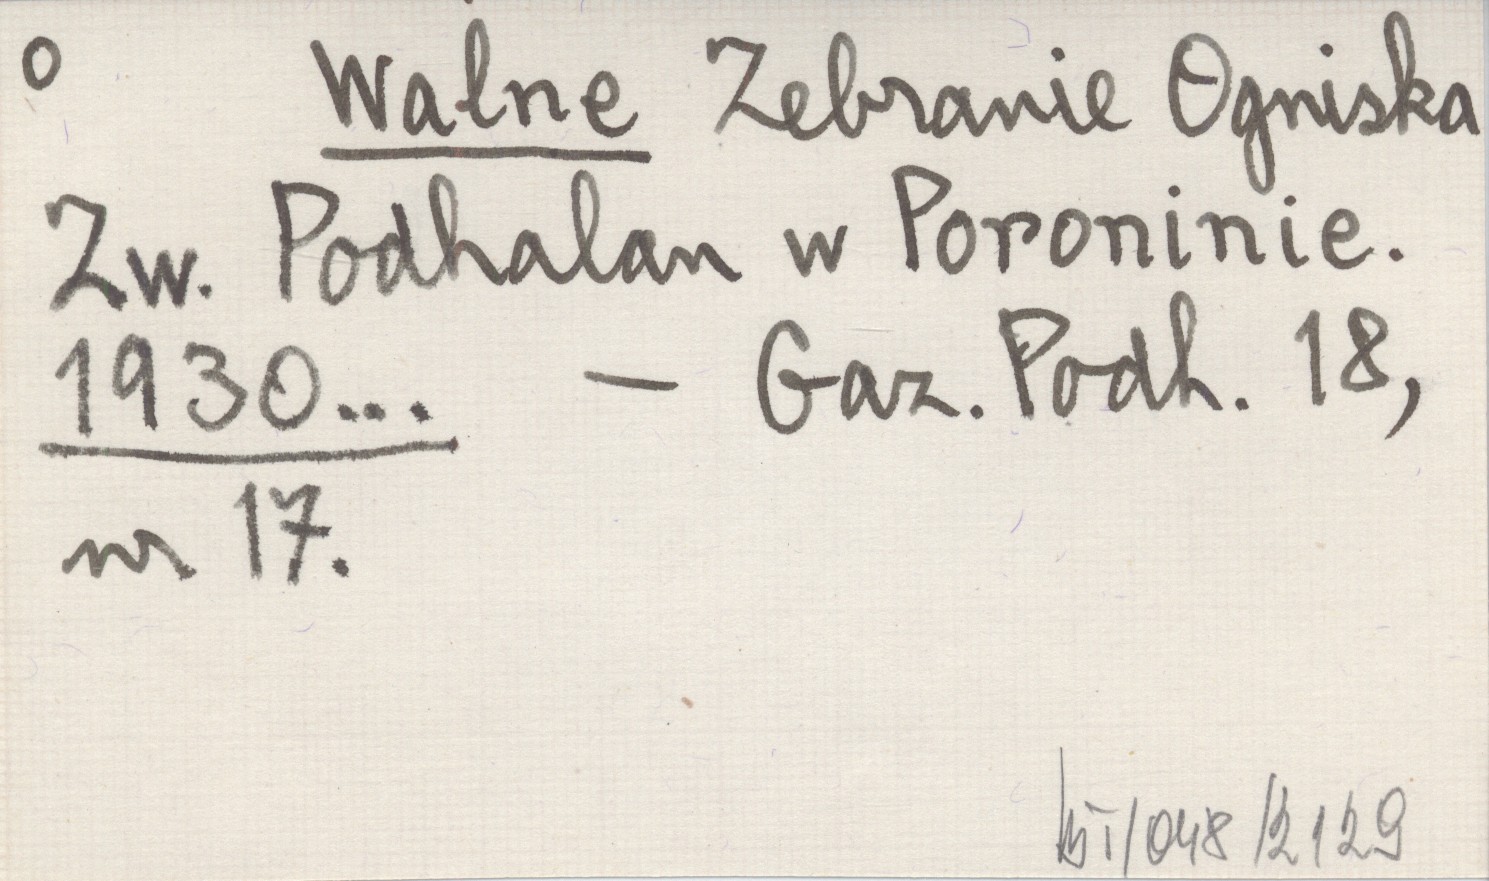 o Walne Zebranie Ogniska
Zw. Podhalan w Poroninie.
1930... — Gaz. Podh. 18,
nr 17.
/048/2129